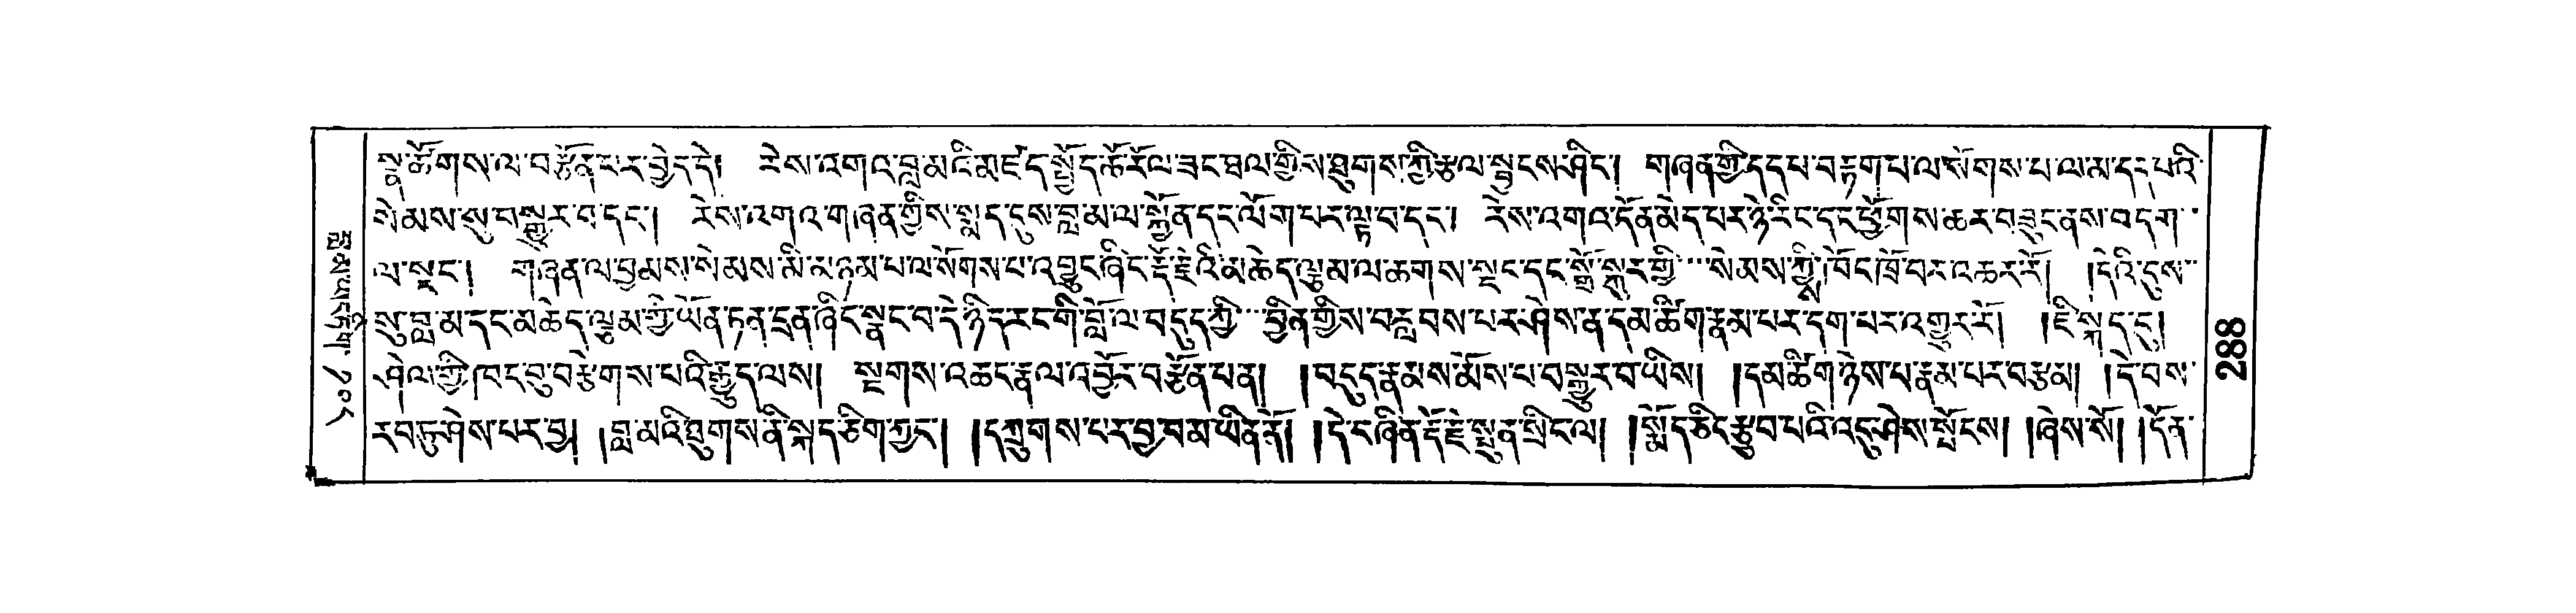 སྣ་ཚོགས་ལ་བརྩོན་པར་བྱེད་དེ། རེས་འགའ་བླ་མའི་མཛད་སྤྱོད་ཆོ་རོལ་ཟང་ཐལ་གྱིས་ཐུགས་ཀྱི་རྩལ་སྦྱངས་ཤིང་། གཞན་གྱི་དད་པ་བརྟག་པ་ལ་སོགས་པ་ལ་མ་དད་པའི་
སེམས་སུ་བསྒྱུར་བ་དང་། རེས་འགའ་གཞན་གྱིས་སླད་དུས་བླ་མ་ལ་སྐྱོན་དང་ལོག་པར་ལྟ་བ་དང་། རེས་འགའ་དོན་མེད་པར་ཉེ་རིང་དང་ཕྱོགས་ཆར་བཟུང་ནས་བདག་
ལ་སྡང་། གཞན་ལ་བྱམས་སེམས་མི་མཉམ་པ་ལ་སོགས་པ་འབྱུང་ཞིང་རྡོ་རྗེའི་མཆེད་ལྕམ་ལ་ཆགས་སྡང་དང་སྒྲོ་སྐུར་གྱི་སེམས་ཀྱི་ཁོང་ཁྲོ་བར་འཆར་རོ། །དེའི་དུས་
སུ་བླ་མ་དང་མཆེད་ལྕམ་གྱི་ཡོན་ཏན་དྲན་ཞིང་སྣང་བ་དེ་ཉིད་རང་གི་བློ་ལ་བདུད་ཀྱི་བྱིན་གྱིས་བརླབས་པར་ཤེས་ན་དམ་ཚིག་རྣམ་པར་དག་པར་འགྱུར་རོ། །ཇི་སྐད་དུ།
ཤེལ་གྱི་ཁང་བུ་བརྩེགས་པའི་རྒྱུད་ལས། སྔགས་འཆང་རྣལ་འབྱོར་བརྩོན་པ་ན། །བདུད་རྣམས་མོས་པ་བསྒྱུར་བ་ཡིས། །དམ་ཚིག་ཉེས་པ་རྣམ་པར་བརྩམ། །དེ་བས་
རབ་ཏུ་ཤེས་པར་བྱ། །བླ་མའི་ཐུགས་ནི་སྐད་ཅིག་ཀྱང་། །དཀྲུགས་པར་བྱ་བ་མ་ཡིན་ནོ། །དེ་བཞིན་རྡོ་རྗེ་སྤུན་སྲིང་ལ། །སྨོད་ཅིང་རྩུབ་པའི་འདུ་ཤེས་སྤོངས། །ཞེས་སོ། །དོན་